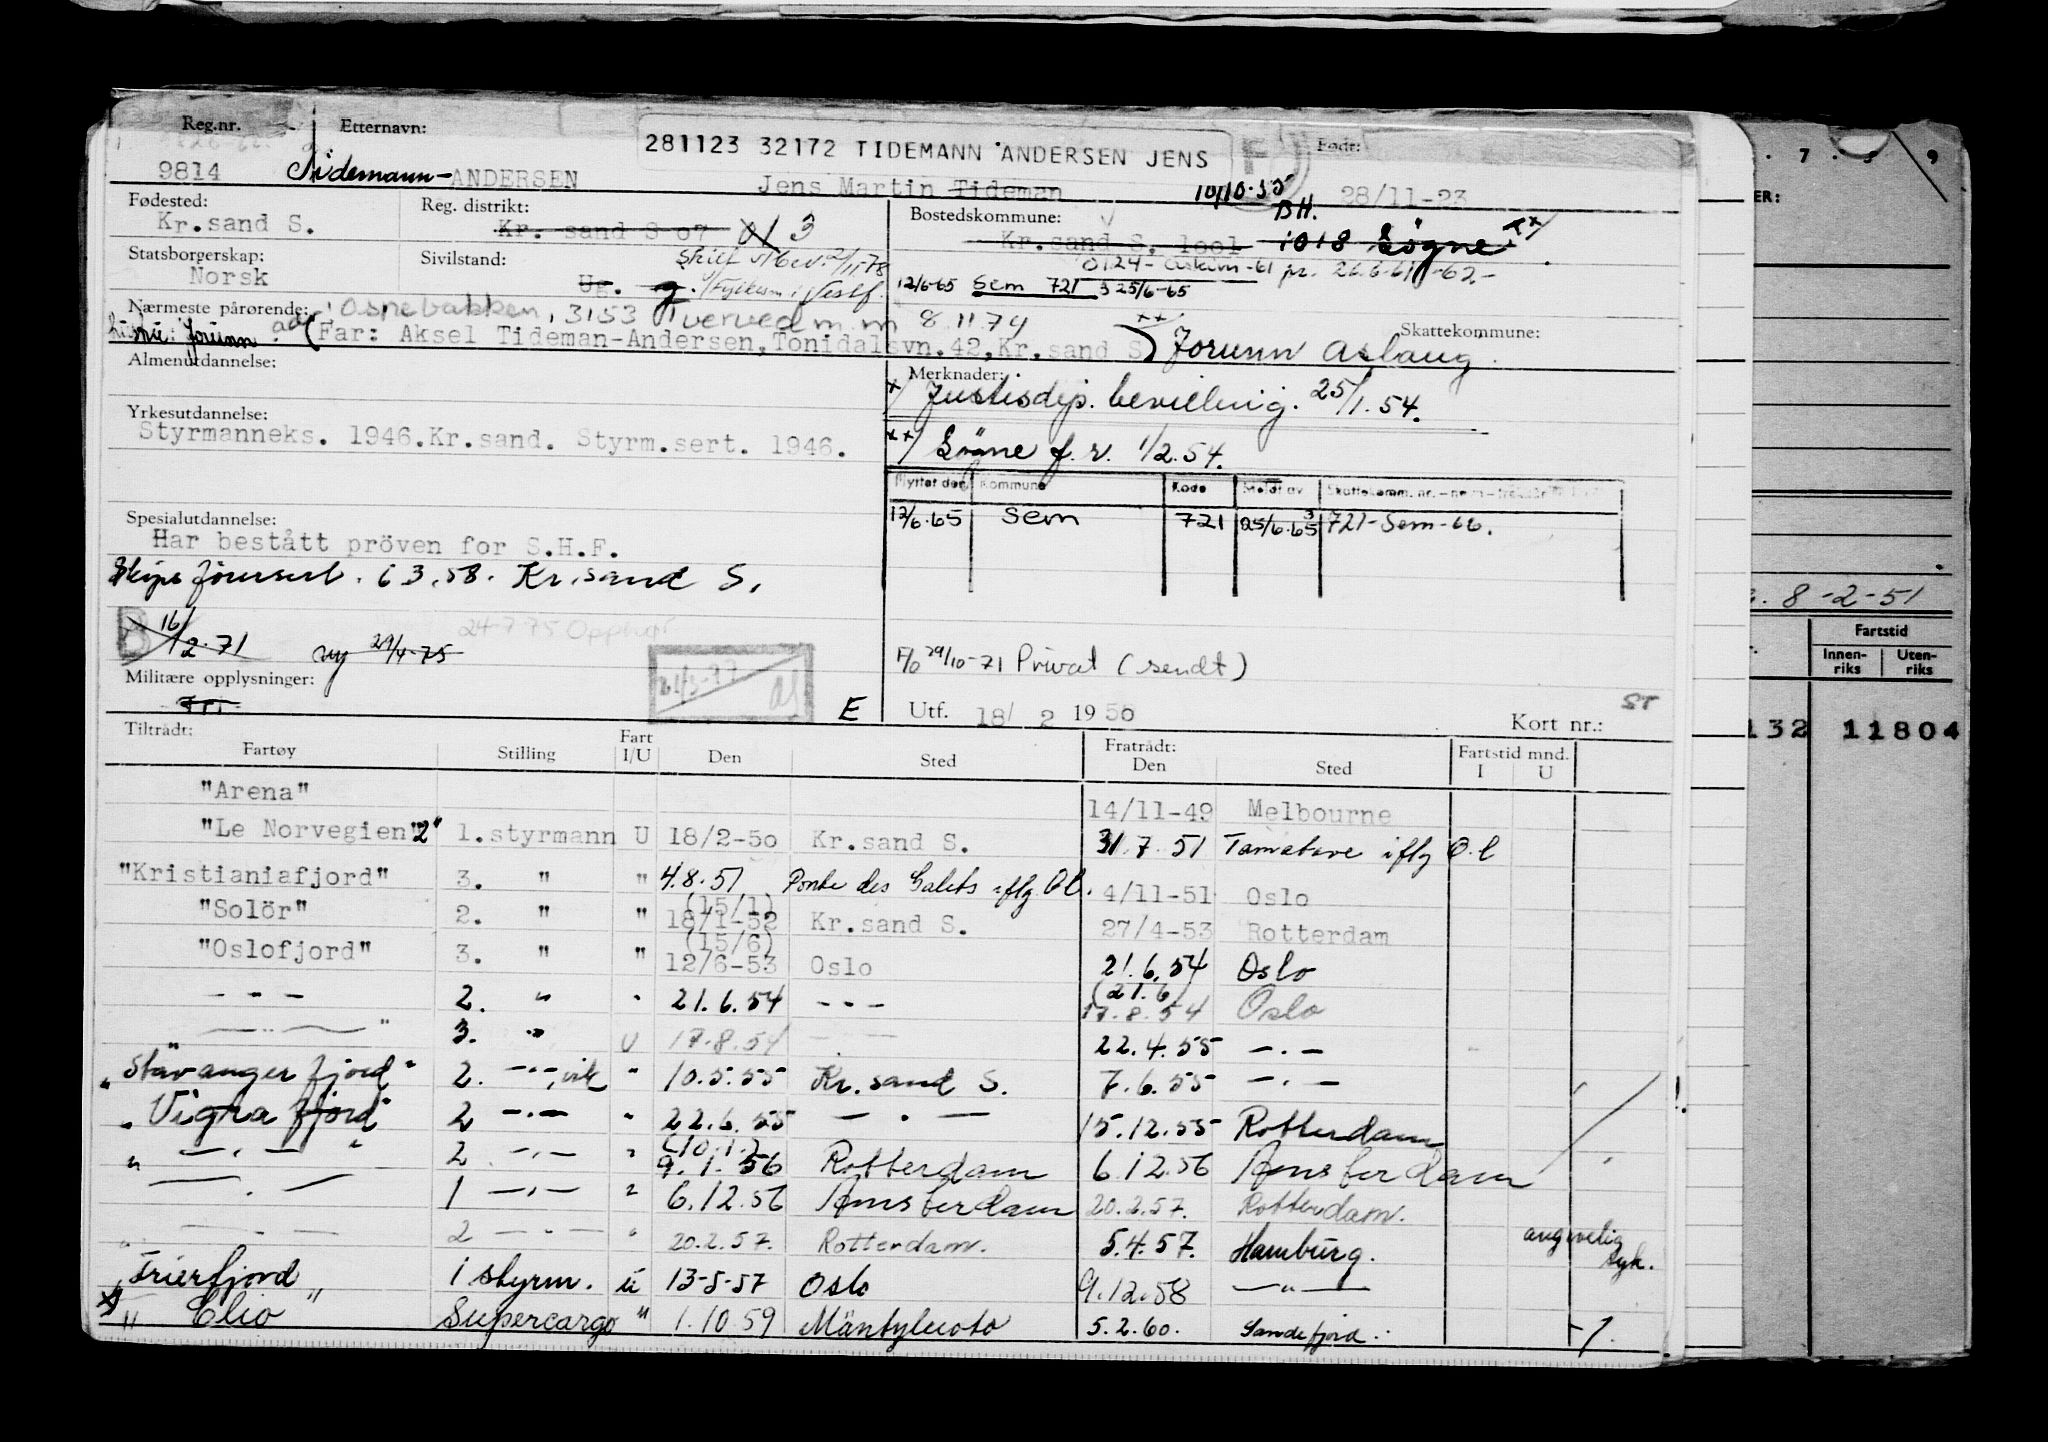 Reg.nr. Etternavn: Født:
281123 32172 TIDEMANN ANDERSEN JENS
9814 Tidemann-ANDERSEN Jens Martin Tideman 28/11-23
10/10-55 BH.
Fødested: Reg. distrikt: Bostedskommune:
Kr.sand S. Kr. sand S 07 013 Kr.sand S. 1001 1018 Søgne xx/
Statsborgerskap: Sivilstand: 0124-Askim-61 pr. 26.6-61-62.-
Norsk Ug. g. 12/6-65 Sem 721 3 25/6-65
Nærmeste pårørende: Osnebakken, 3153 Tverved m.m 8.11.74 xx/ Skattekommune:
Jorunn (Far: Aksel Tideman-Andersen, Tonidalsvn.42, Kr.sand S) Jorunn Aslaug.
Almenutdannelse: Merknader:
x/ Justisdep. bevilling. 25/1.54.
Yrkesutdannelse:
Styrmanneks. 1946.Kr.sand. Styrm.sert. 1946.
xx/ Søgne f.r. 1/2.54.
Flyttet den Kommune Kode Meldt av
12/6.65 Sem 721 25/6.65 3 721-Sem-66.
Spesialutdannelse:
Har bestått pröven for S.H.F.
Skipsförersert. 6 3.58. Kr.sand S.
B 16/2-71 ny 29/4-75 24-7-75 Opphør
F/o 29/10-71 Privat (sendt)
Militære opplysninger:
E Utf. 18/ 2 1950 Kort nr.: ST
Tiltrådt: Fart Fratrådt: Fartstid mnd.
Fartøy Stilling I/U Den Sted Den Sted I U
"Arena" 14/11-49 Melbourne
"Le Norvegien" 2" 1.styrmann U 18/2-50 Kr.sand S. 31.7.51 Tamatave ifly O.l
"Kristianiafjord" 3. " " 4.8.51 Ponte des Galets ifly Ol. 4/11-51 Oslo
"Solör" 2. " " (15/1) 18/1-52 Kr.sand S. 27/4-53 Rotterdam
"Oslofjord" 3. " " (15/6) 12/6-53 Oslo 21.6.54 Oslo
- " - 2. " " 21.6.54 - - - (21.6) 17.8.54 Oslo
- " - " 3. " U 17.8.54 - - 22.4.55 - . -
"Stavangerfjord" 2. - " - vik " 10.5.55 Kr.sand S. 7.6.55 - . -
"Vigrafjord" 2 - . - " 22.6.55 - . - 15.12.55 Rotterdam
" - . - " 2 - . - " (10.1.) 9.1.56 Rotterdam 6.12.56 Amsterdam
" - . - 1 - . - " 6.12.56 Amsterdam 20.2.57. Rotterdam.
" - - - 2 - " - " 20.2.57. Rotterdam. 5.4.57. Hamburg. angivelig syk.
"Trierfjord" 1 styrm. U 13-5-57 Oslo 9.12.58 - " -
x) "Clio" Supercargo " 1.10.59 Mäntyluoto 5.2.60. Sandefjord. -1.
. 7 . 8 9
ER:
8-2-51
Fartstid
Innen-riks Uten-riks
132 11804